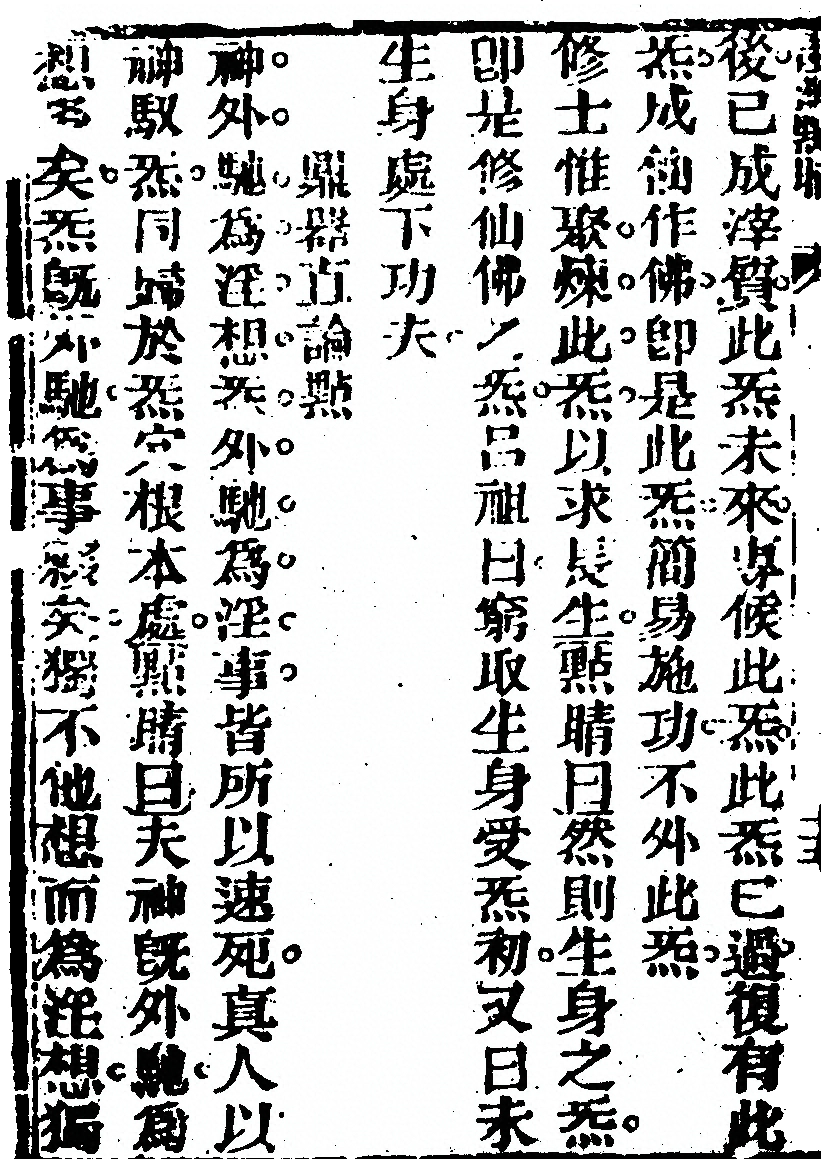 後已成滓質此炁未來專候此炁此炁已過復有此
炁成仙作佛卽是此炁簡易施功不外此炁
修士惟聚煉此炁以求長生點睛曰然則生身之炁
卽是修仙佛之炁呂祖曰窮取生身受炁初又曰未
生身處下功夫
鼎器直論點
神外馳爲淫想炁外馳爲淫事皆所以速死真人以
神馭炁同歸於炁穴根本處點睛曰夫神旣外馳爲
想矣炁旣外馳爲事矣獨不他想而爲淫想獨